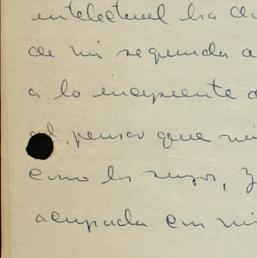 intelectual ha de
de mi segunda a
a lo incipiente d
al pensar que mi
como los suyos, y
acupada en mi